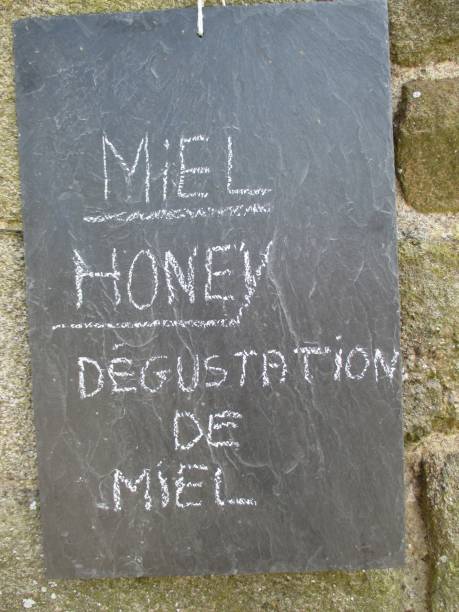 MiEL
HONEY
DÊGUSTATiON
DE
MiEL